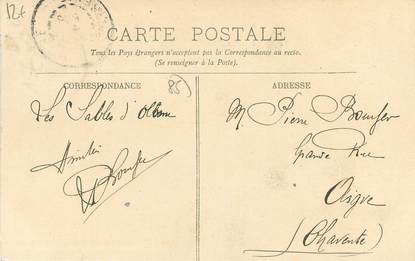 12€
CARTE POSTALE
Tous les Pays étrangers n'acceptent pas la Correspondance au recto.
(Se renseigner à la Poste).
CORRESPONDANCE
85
ADRESSE
Les Sables d'Olonne
M. Pierre
Grande Rue
Aigre
(Charente)